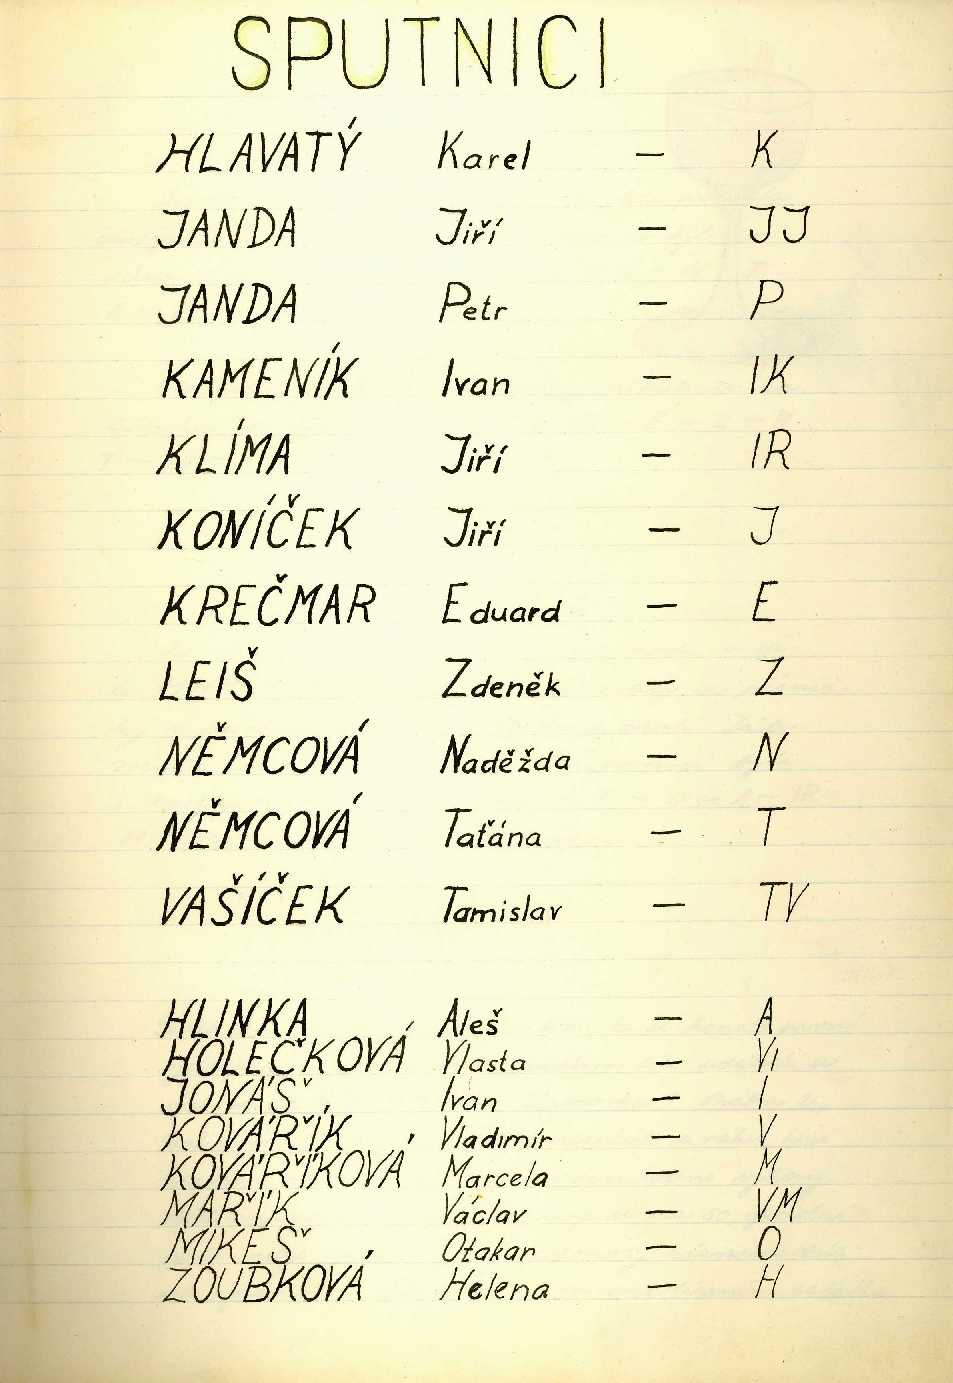 SPUTNICI
HLAVATÝ Karel – K
JANDA Jiří – JJ
JANDA Petr – P
KAMENÍK Ivan – IK
KLÍMA Jiří – IR
KONÍČEK Jiří – J
KREČMAR Eduard – E
LEIŠ Zdeněk – Z
NĚMCOVÁ Naděžda – N
NĚMCOVÁ Taťána – T
VAŠÍČEK Tamislav – TV
HLINKA Aleš – A
HOLEČKOVÁ Vlasta – Vl
JONÁŠ Ivan – I
KOVÁŘÍK Vladimír – V
KOVÁŘÍKOVÁ Marcela – M
MAŘÍK Václav – VM
MIKEŠ Otakar – O
ZOUBKOVÁ Helena – H